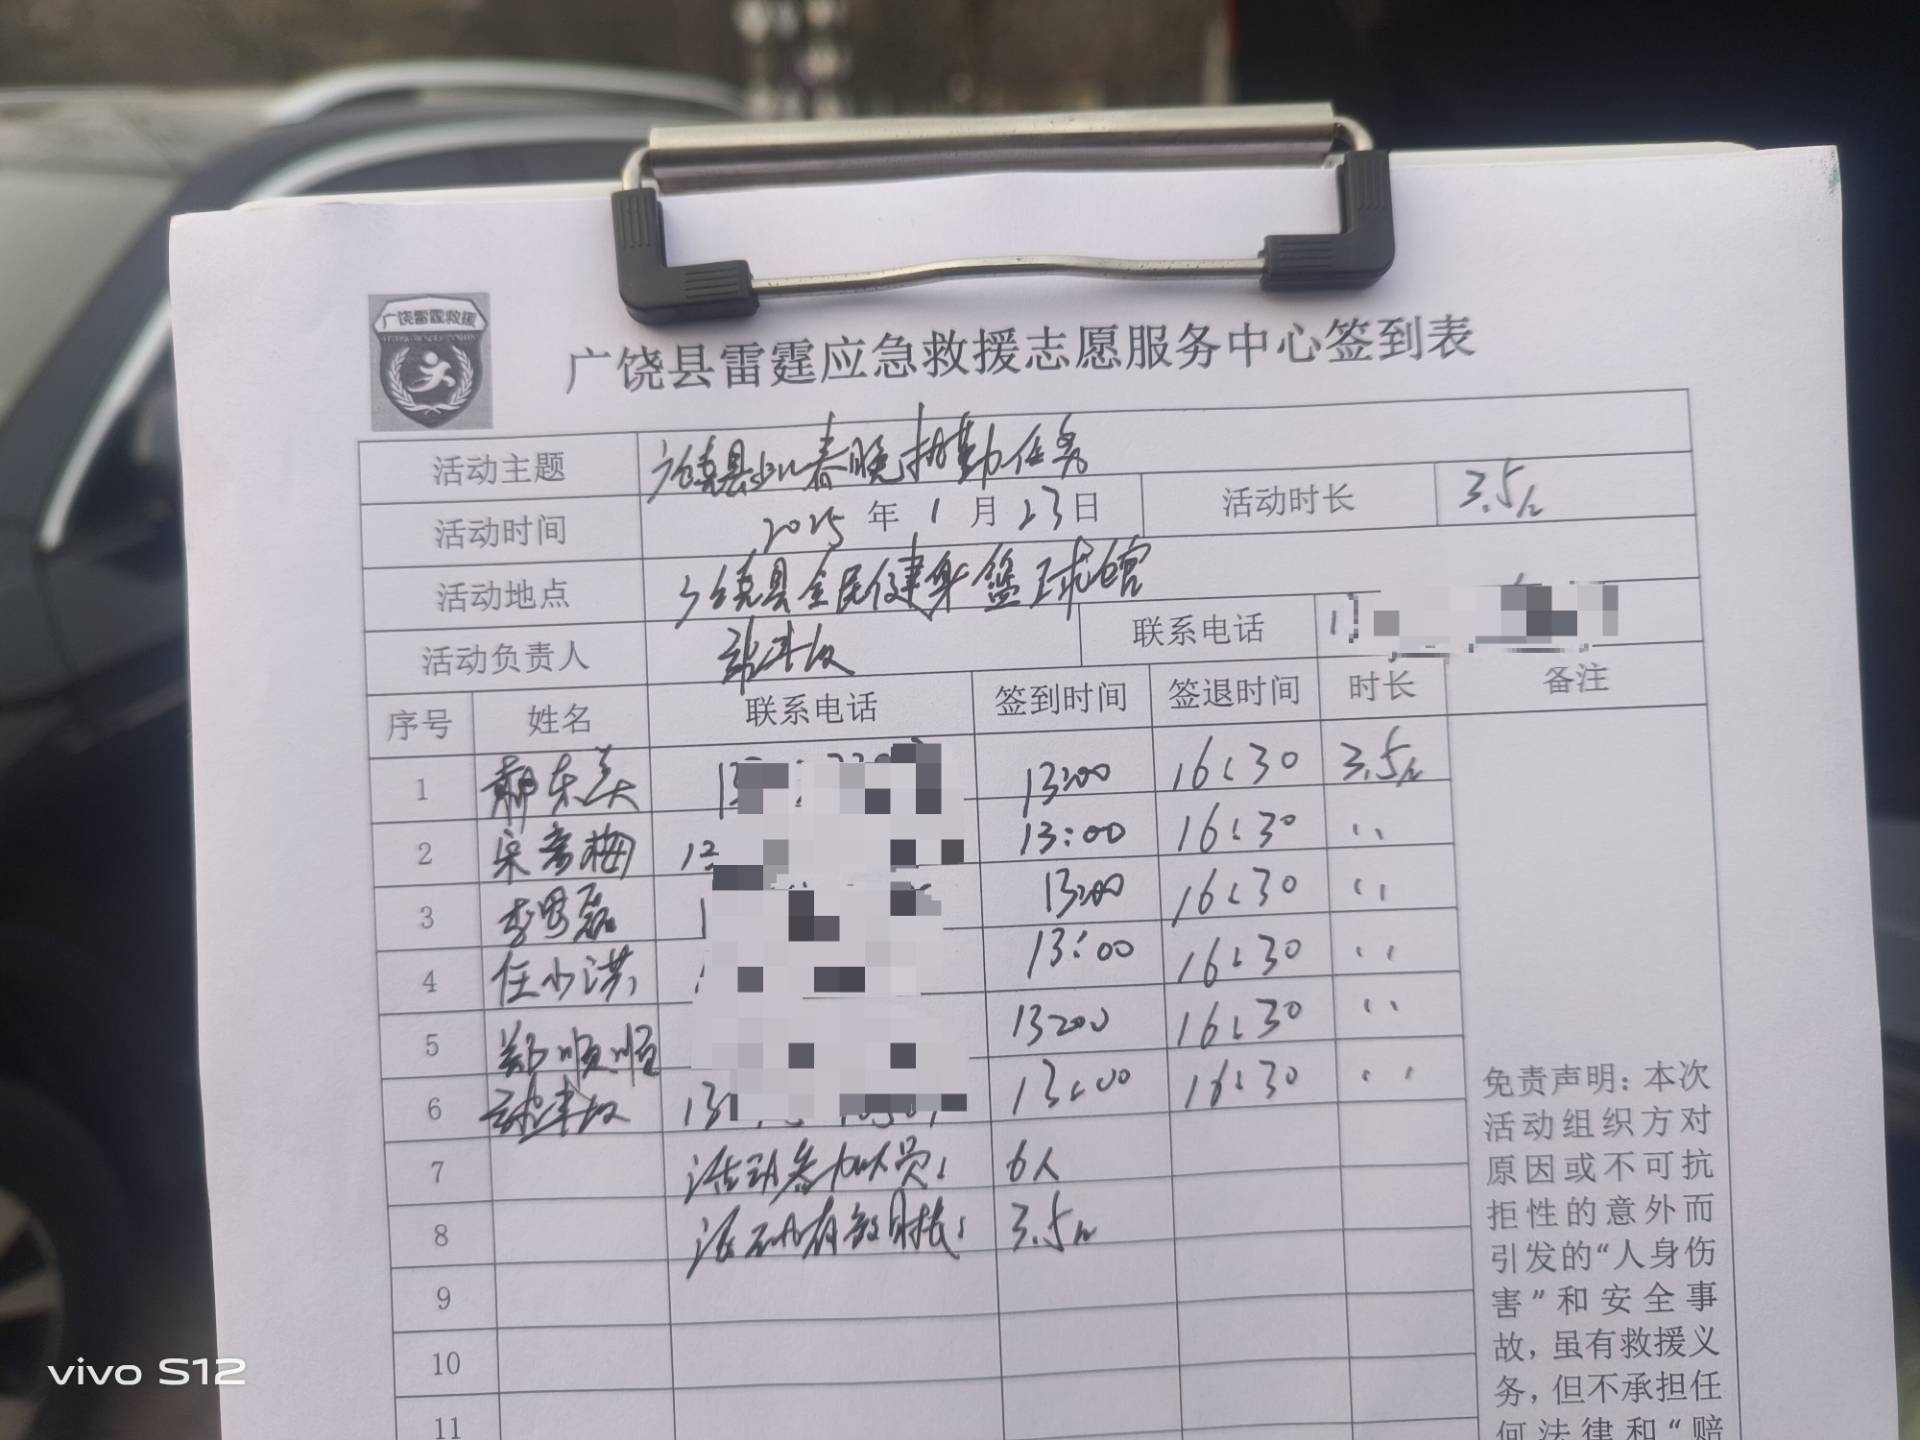 广饶雷霆救援
广饶县雷霆应急救援志愿服务中心签到表
活动主题 广饶县 春晚执勤任务
活动时间 2025年1月23日 活动时长 3.5h
活动地点 广饶县全民健身篮球馆
活动负责人 联系电话 1
序号 姓名 联系电话 签到时间 签退时间 时长 备注
1 13:00 16:30 3.5h
2 宋 梅 13:00 16:30 〃
3 李 磊 13:00 16:30 〃
4 任小洪 13:00 16:30 〃
5 郑顺顺 13:00 16:30 〃
6 13 13:00 16:30 〃
7 活动参加人员: 6人
8 活动有效时长: 3.5h
9
10
11
免责声明:本次
活动组织方对
原因或不可抗
拒性的意外而
引发的“人身伤
害”和安全事
故,虽有救援义
务,但不承担任
何法律和“赔
vivo S12